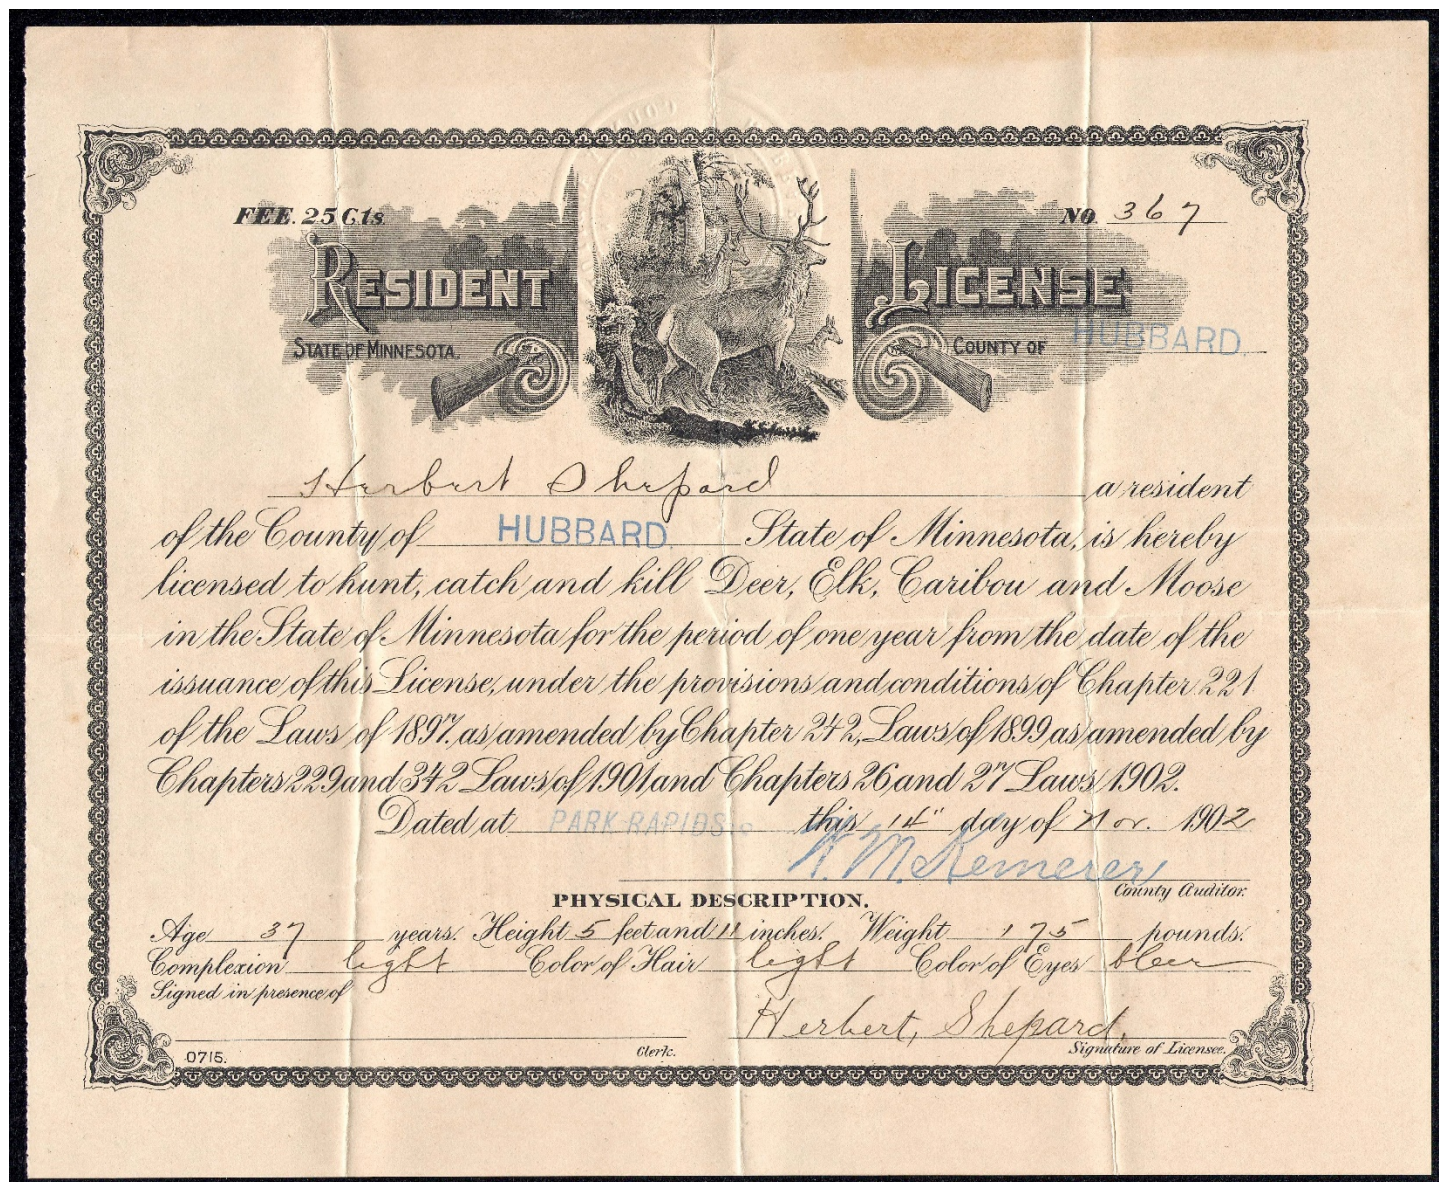 FEE. 25 Cts
NO 367
RESIDENT LICENSE
STATE OF MINNESOTA. COUNTY OF HUBBARD
Herbert Shepard a resident
of the County of HUBBARD State of Minnesota, is hereby
licensed to hunt, catch and kill Deer, Elk, Caribou and Moose
in the State of Minnesota for the period of one year from the date of the
issuance of this License, under the provisions and conditions of Chapter 221
of the Laws of 1897. as amended by Chapter 242, Laws of 1899 as amended by
Chapters 229 and 342 Laws of 1901 and Chapters 26 and 27 Laws 1902.
Dated at PARK RAPIDS this 14" day of Nov. 1902
Kemerer
County Auditor.
PHYSICAL DESCRIPTION.
Age 37 years. Height 5 feet and 11 inches. Weight 175 pounds.
Complexion light Color of Hair light Color of Eyes
Signed in presence of
Herbert, Shepard,
0715. Clerk. Signature of Licensee.